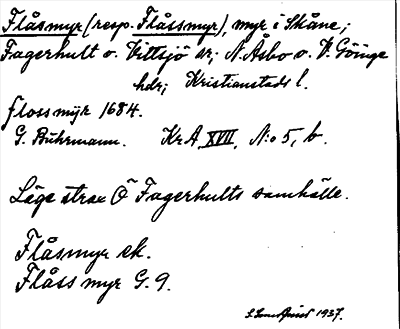 Flåsmyr (resp. Flåssmyr), myr i Skåne;
Fagerhult o. Vittsjö sr; N. Åsbo o. V. Göinge
hdr; Kristianstads l.
flossmÿr 1684.
G. Buhrmann. KrA XVIII, N:o 5, b.
Läge strax Ö Fagerhults samhälle.
Flåsmyr ek.
Flåss myr G. 9.
1937.